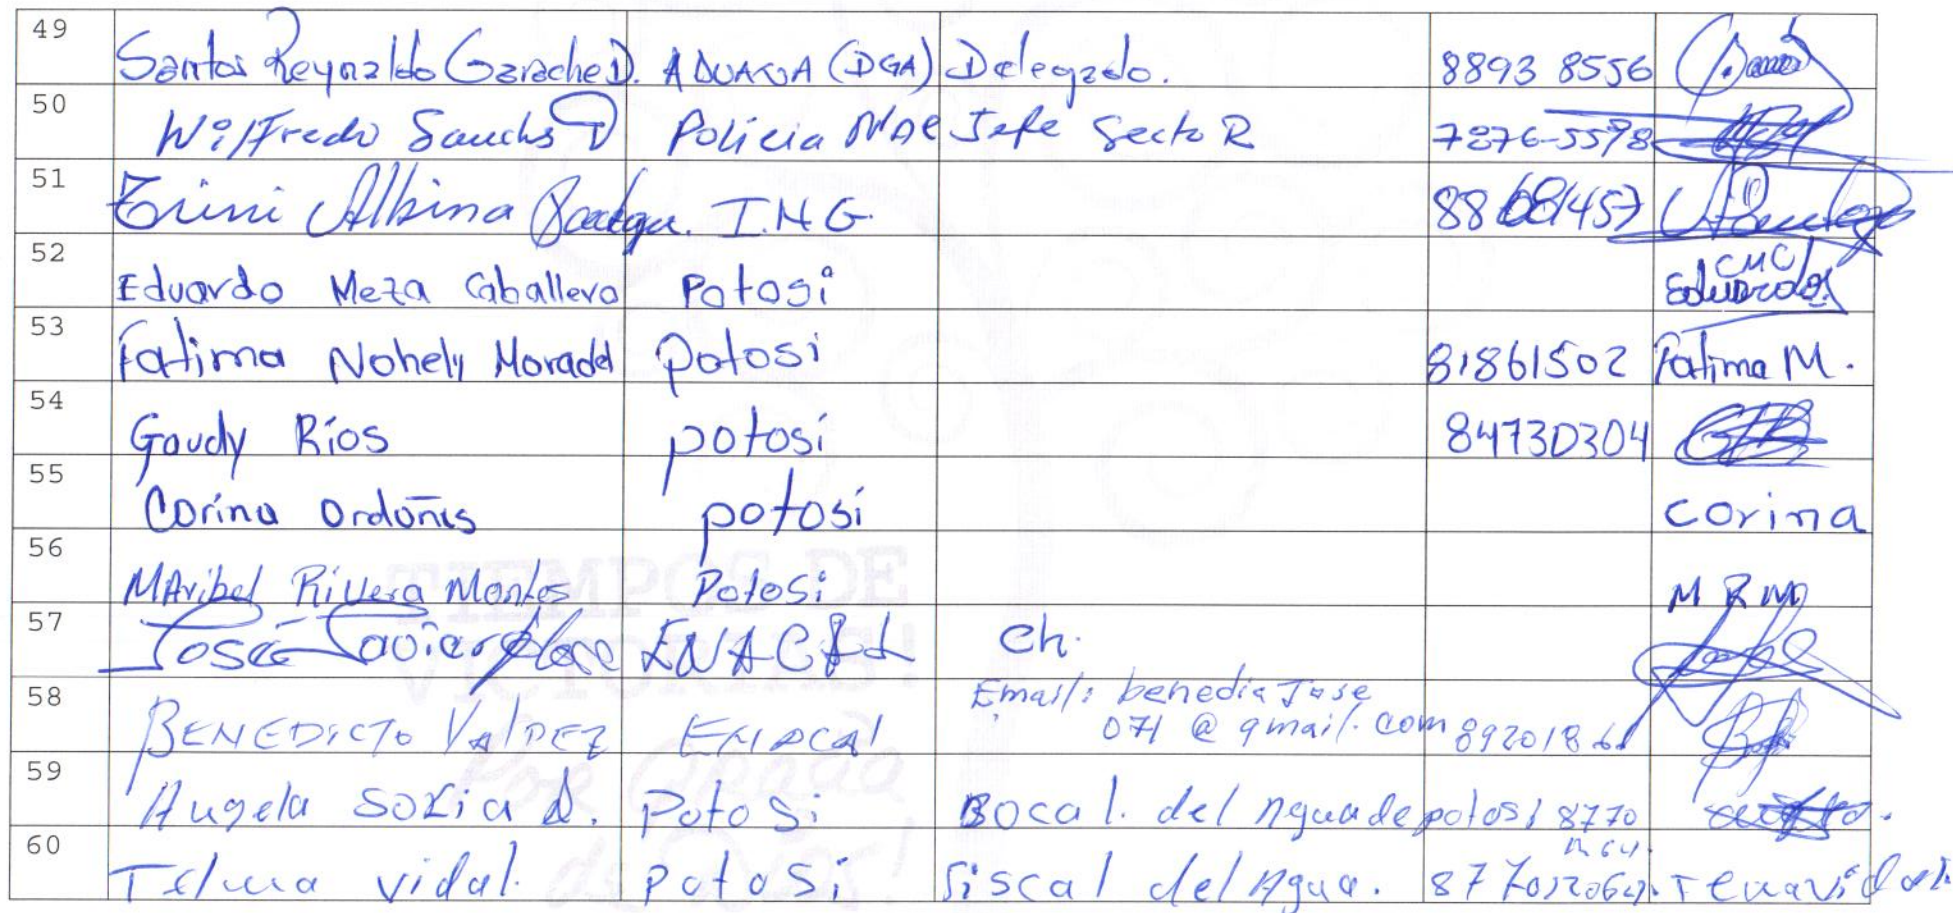 49 Santos Reynaldo Garache D. ADUANA (DGA) Delegado. 8893 8556
50 Wilfredo Sanchs D Policia NAC Jefe Secto R 7876-5598
51 Albina I.N.G. 88681457
52 Eduardo Meza Caballero Potosi CMC Eduardo
53 Fatima Nohely Moradel potosi 81861502 Fatima M.
54 Goudy Ríos potosi 84730304
55 Corina Ordoñis potosí corina
56 MAribel Rivera Montes Potosi M R M
57 José ENACAL Ch.
58 BENEDICTO ValDEZ ENACAl Email: benedia Jose
071 @ gmail. com 8920186
59 Angela SoZia D. Potosi Bocal. del Agua de potosi 8770
60 Telma vidal. potosi fiscal del Agua.
TIEMPOS DE
VICTORIAS!
Por Gracia
de Dios!